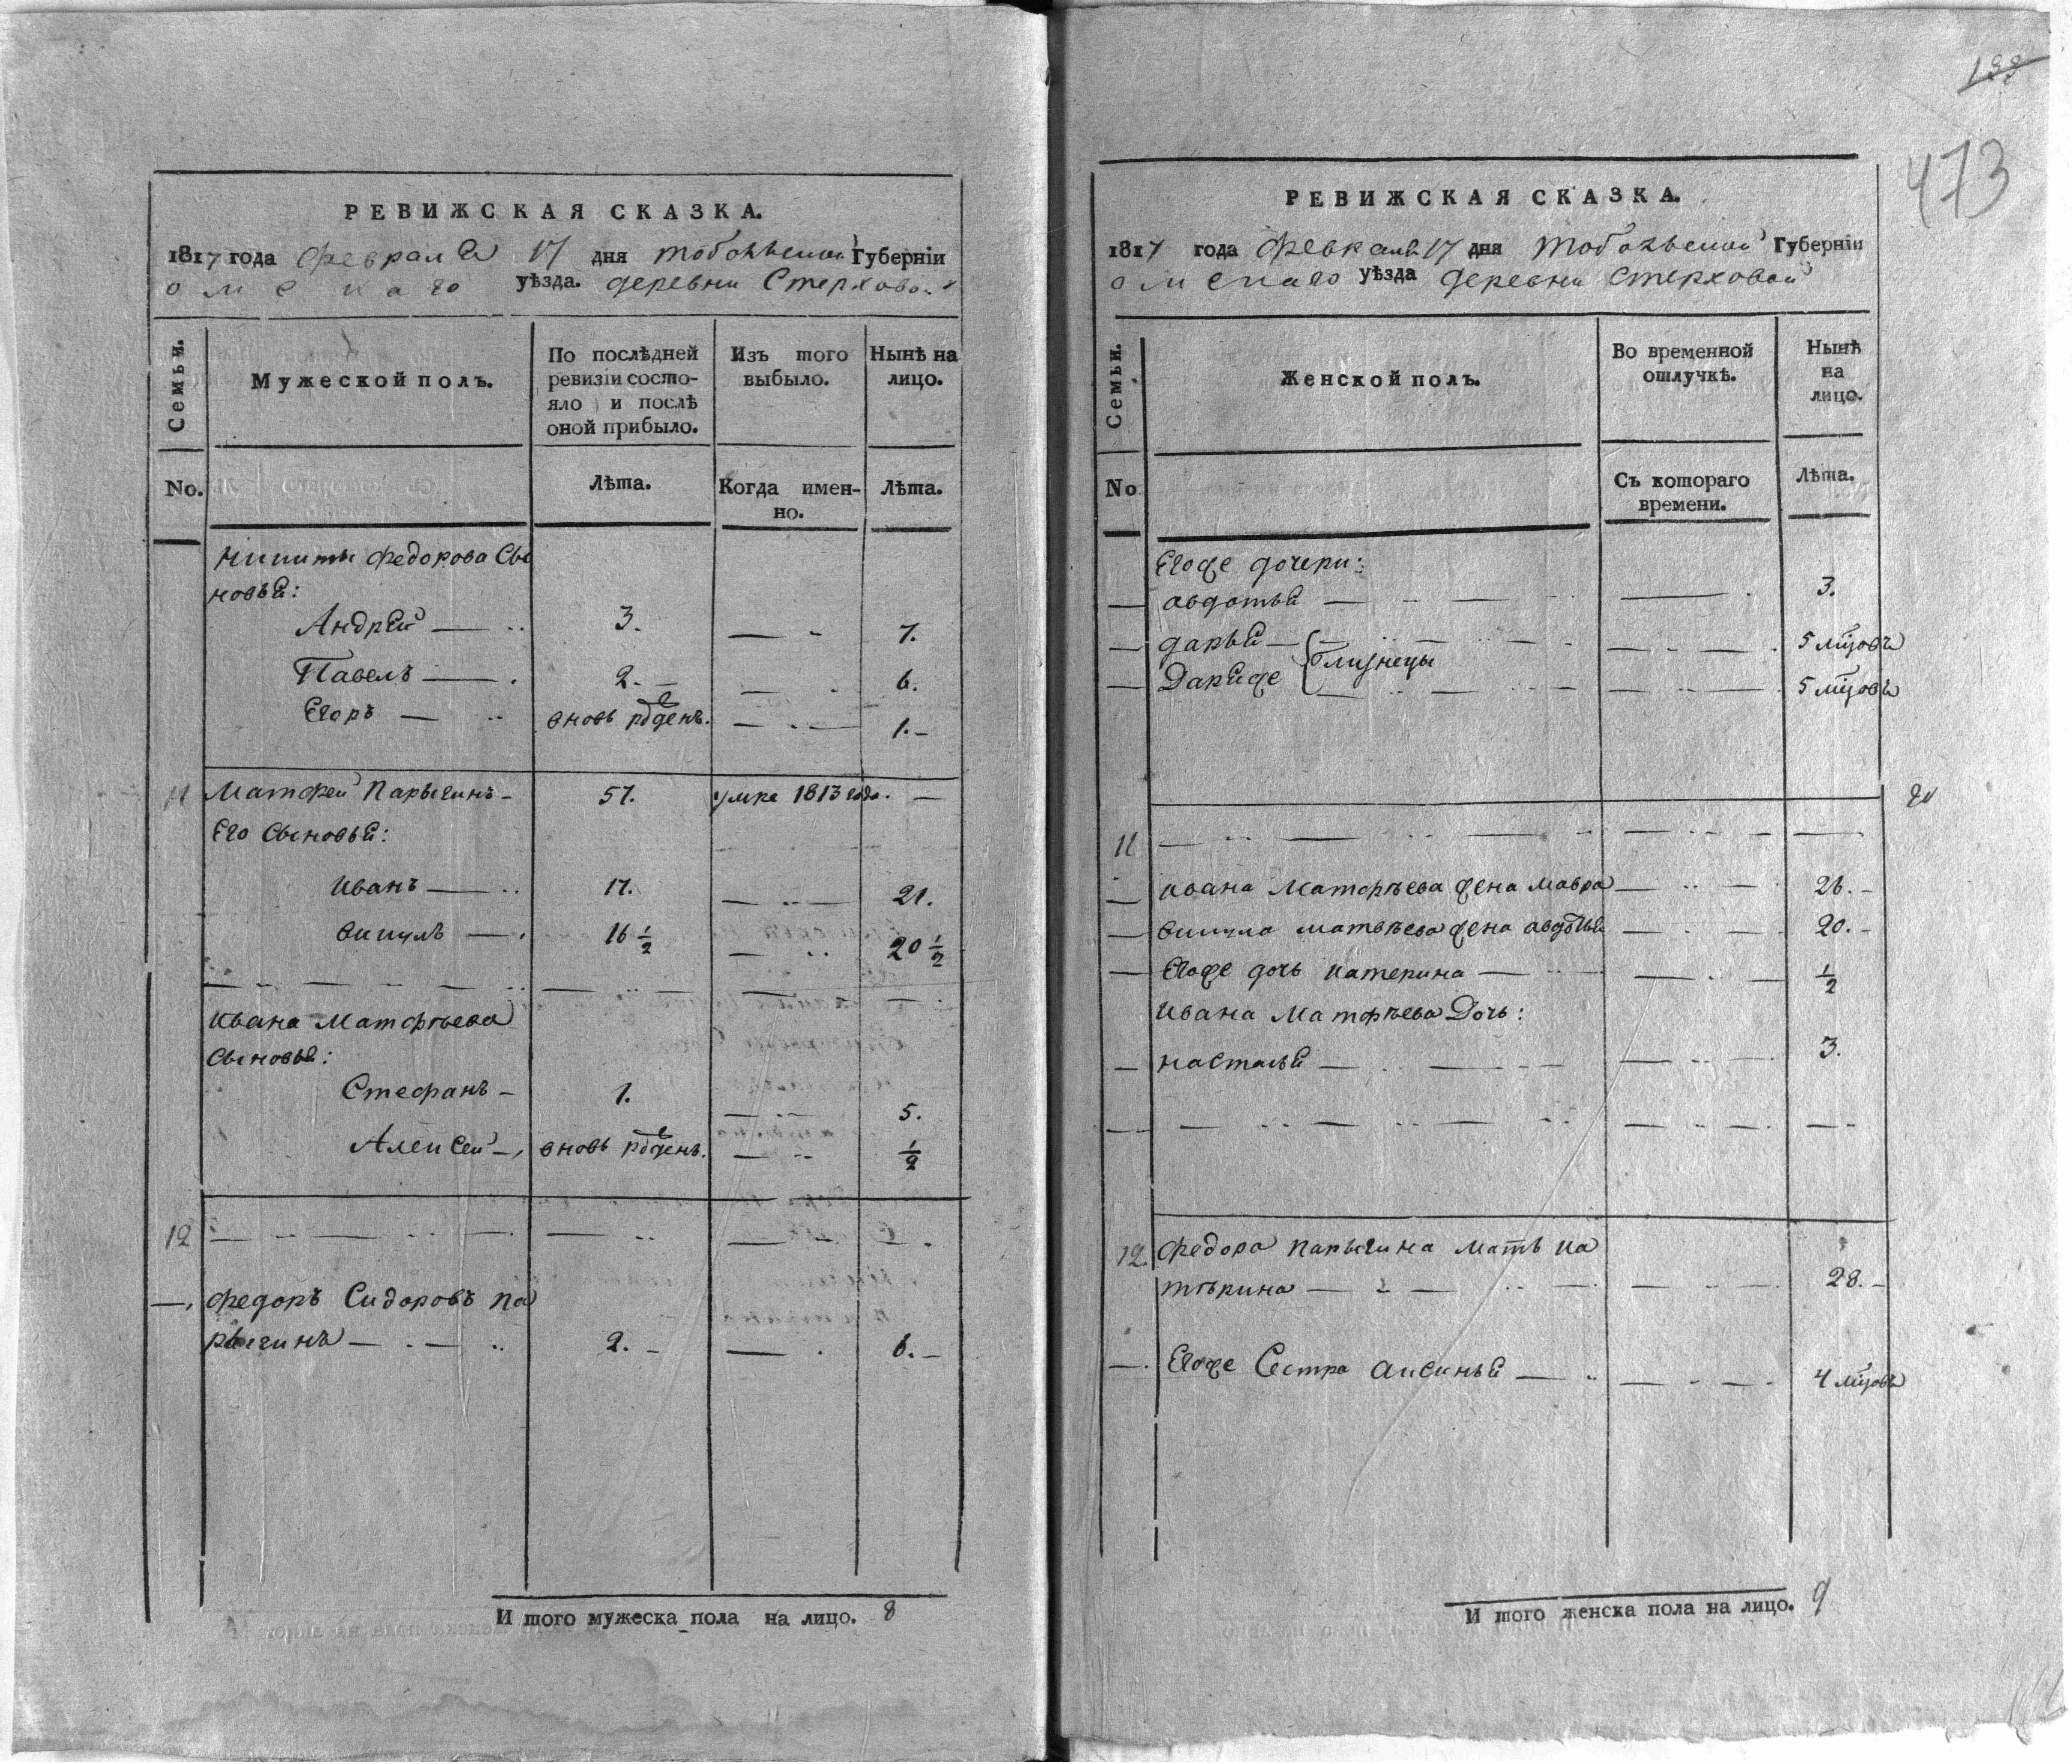 РЕВИЖСКАЯ СКАЗКА.
1817 года февраля 17 дня тобольской Губерніи
омскаго уѣзда. деревни Стерховой
Семьи.
Мужеской полъ.
По послѣдней ревизіи состо-
яло и послѣ
оной прибыло.
Изъ того
выбыло.
Нынѣ на
лицо.
No.
Лѣта.
Когда имен-
но.
Лѣта.
Никиты Федорова Сы
новья:
Андрей — 3. — 7.
Павелъ — 2. — 6.
Егоръ — вновь рожденъ. — 1.
11 Матфей Парыгинъ — 57. умре 1813 года. —
Его Сыновья:
Иванъ — 17. — 21.
викулъ — 16 ½ — 20 ½
Ивана Матфѣева
Сыновья:
Стефанъ — 1. — 5.
Алексей — вновь рожденъ. — ½
12
Федоръ Сидоровъ Па
рыгинъ — 2. — 6.
И того мужеска пола на лицо. 8
133
473
РЕВИЖСКАЯ СКАЗКА.
1817 года февраля 17 дня тобольской Губерніи
омскаго уѣзда деревни Стерховой
Семьи.
Женской полъ.
Во временной
отлучкѣ.
Нынѣ
на
лицо.
No
Съ котораго
времени.
Лѣта.
Егоже дочери:
авдотья — 3.
дарья — 5 мцовъ
близнецы
Дарья же — 5 мцовъ
11
Ивана Матфѣева жена мавра — 26.
викула матвѣева жена авдотья — 20.
Егоже дочь катерина — ½
Ивана Матфѣева Дочь:
настасья — 3.
12. Федора Парыгина мать ка
тѣрина — 28.
Егоже Сестра аксинья — 4 мцовъ
И того женска пола на лицо. 9